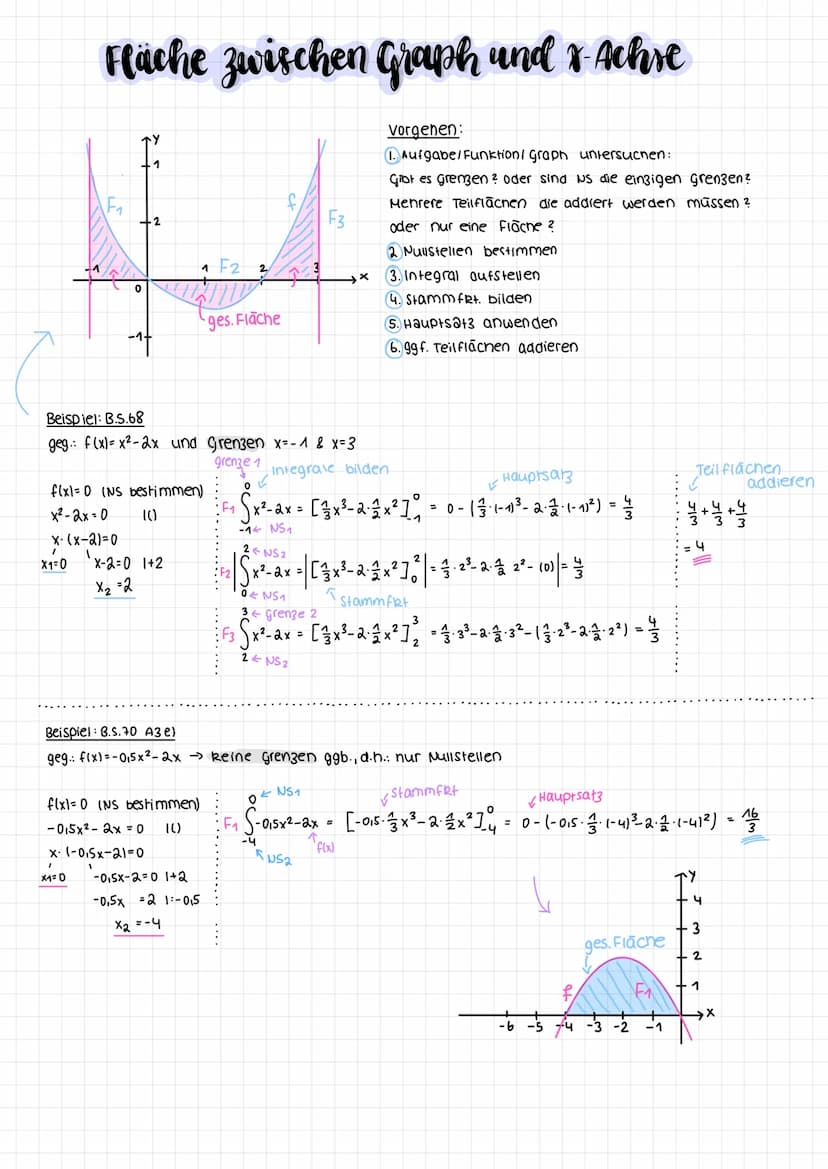 Fläche zwischen Graph und x-Achse
Vorgehen:
1. Aufgabe/Funktion/Graph untersuchen:
Gibt es Grenzen? oder sind NS die einzigen Grenzen?
Mehrere Teilflächen die addiert werden müssen?
oder nur eine Fläche?
2. Nullstellen bestimmen
3. Integral aufstellen
4. Stammfkt. bilden
5. Hauptsatz anwenden
6. ggf. Teilflächen addieren
y
1
2
F1
f
F3
-1
1
F2
2
3
x
0
ges. Fläche
-1
Beispiel: B.S.68
geg.: f(x)= x²-2x und Grenzen x=-1 & x=3
f(x)=0 (NS bestimmen)
x²-2x=0 |()
x·(x-2)=0
x1=0 x-2=0 |+2
x2=2
Grenze 1
Integrale bilden
Hauptsatz
F1 ∫₋₁⁰ x²-2x = [1/3x³-2·1/2x²]₋₁⁰ = 0-(1/3·(-1)³-2·1/2·(-1)²) = 4/3
-1 ← NS1
2 ← NS2
F2 |∫₀² x²-2x = |[1/3x³-2·1/2x²]₀²| = 1/3·2³-2·1/2 2²-(0)| = 4/3
0 ← NS1
Stammfkt
3 ← Grenze 2
F3 ∫₂³ x²-2x = [1/3x³-2·1/2x²]₂³ = 1/3·3³-2·1/2·3²-(1/3·2³-2·1/2·2²) = 4/3
2 ← NS2
Teilflächen
addieren
4/3+4/3+4/3
= 4
Beispiel: B.S.70 A3e)
geg.: f(x)=-0,5x²-2x → keine Grenzen ggb., d.h.: nur Nullstellen
f(x)=0 (NS bestimmen)
-0,5x²-2x=0 |()
x·(-0,5x-2)=0
x1=0 -0,5x-2=0 |+2
-0,5x =2 |:-0,5
x2=-4
0 ← NS1
Stammfkt
Hauptsatz
F1 ∫₋₄⁰ -0,5x²-2x = [-0,5·1/3x³-2·1/2x²]₋₄⁰ = 0-(-0,5·1/3·(-4)³-2·1/2·(-4)²) = 16/3
f(x)
NS2
y
4
3
ges. Fläche
2
1
f
F1
x
-6 -5 -4 -3 -2 -1